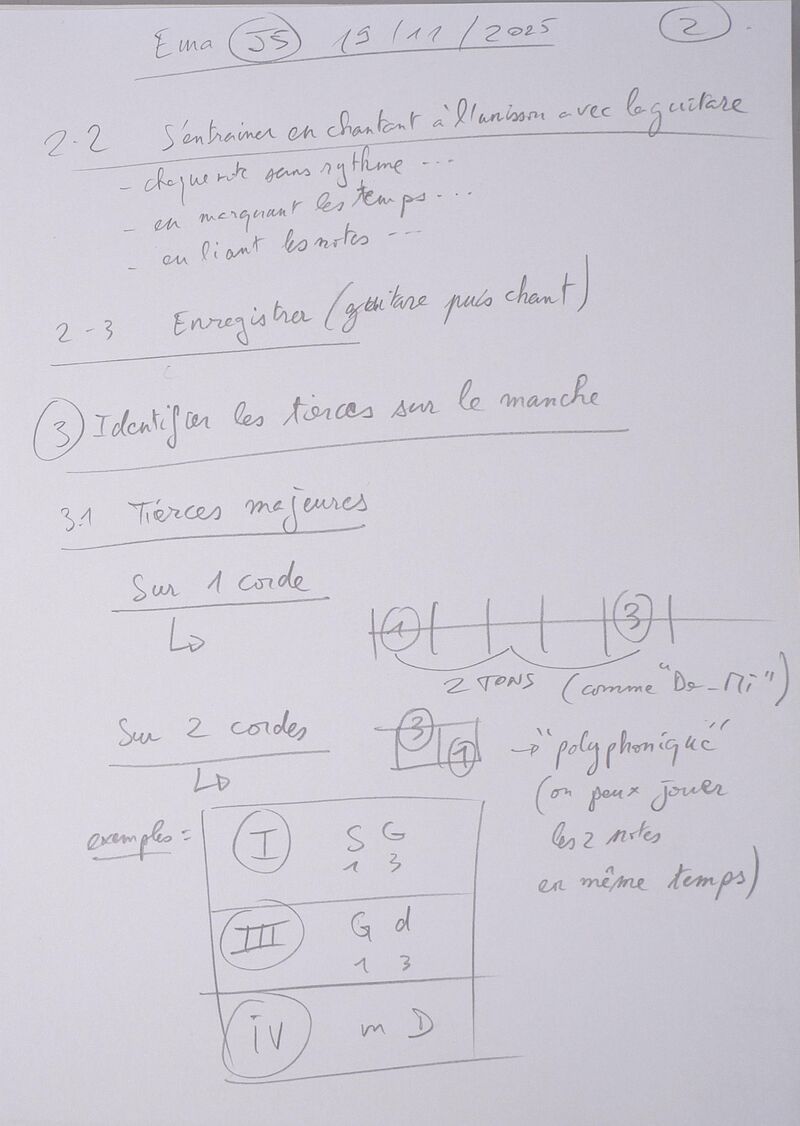 Ema J5 19/11/2025 2
2-2 S'entrainer en chantant à l'unisson avec la guitare
- chaque note sans rythme ...
- en marquant les temps ...
- en liant les notes ...
2-3 Enregistrer (guitare puis chant)
3 Identifier les tierces sur le manche
3.1 Tierces majeures
Sur 1 corde
1 3
2 TONS (comme "Do-Mi")
Sur 2 cordes
3
1
→ "polyphonique"
(on peux jouer
les 2 notes
en même temps)
exemples =
I S G
1 3
III G d
1 3
iv m D